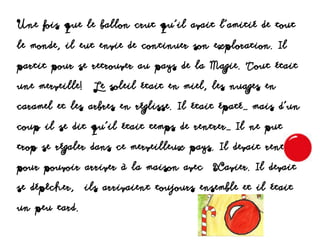 Une fois que le ballon crut qu'il avait l'amitié de tout
le monde, il eut envie de continuer son exploration. Il
partit pour se retrouver au pays de la Magie. Tout était
une merveille! Le soleil était en miel, les nuages en
caramel et les arbres en réglisse. Il était épaté... mais d'un
coup il se dit qu'il était temps de rentrer... Il ne put
trop se régaler dans ce merveilleux pays. Il devait rent
pour pouvoir arriver à la maison avec Xavier. Il devait
se dépêcher, ils arrivaient toujours ensemble et il était
un peu tard.